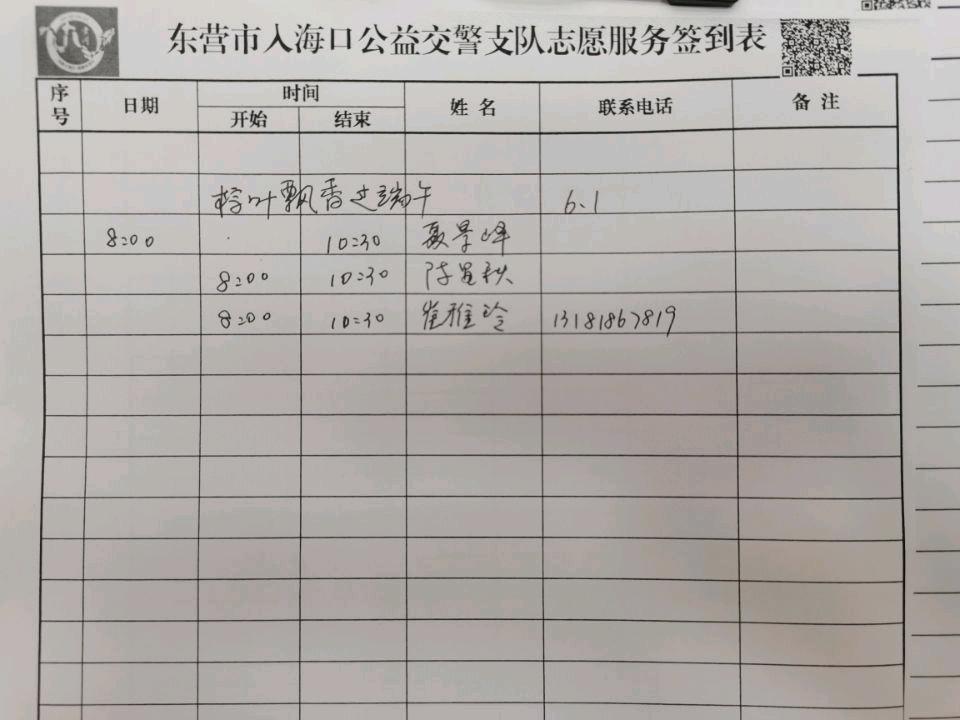 东营市入海口公益交警支队志愿服务签到表
序号 日期 时间 姓名 联系电话 备注
开始 结束
粽叶飘香过端午 6.1
8:00 10:30 聂景峰
8:00 10:30 陈宜秋
8:00 10:30 崔雅玲 13181867819